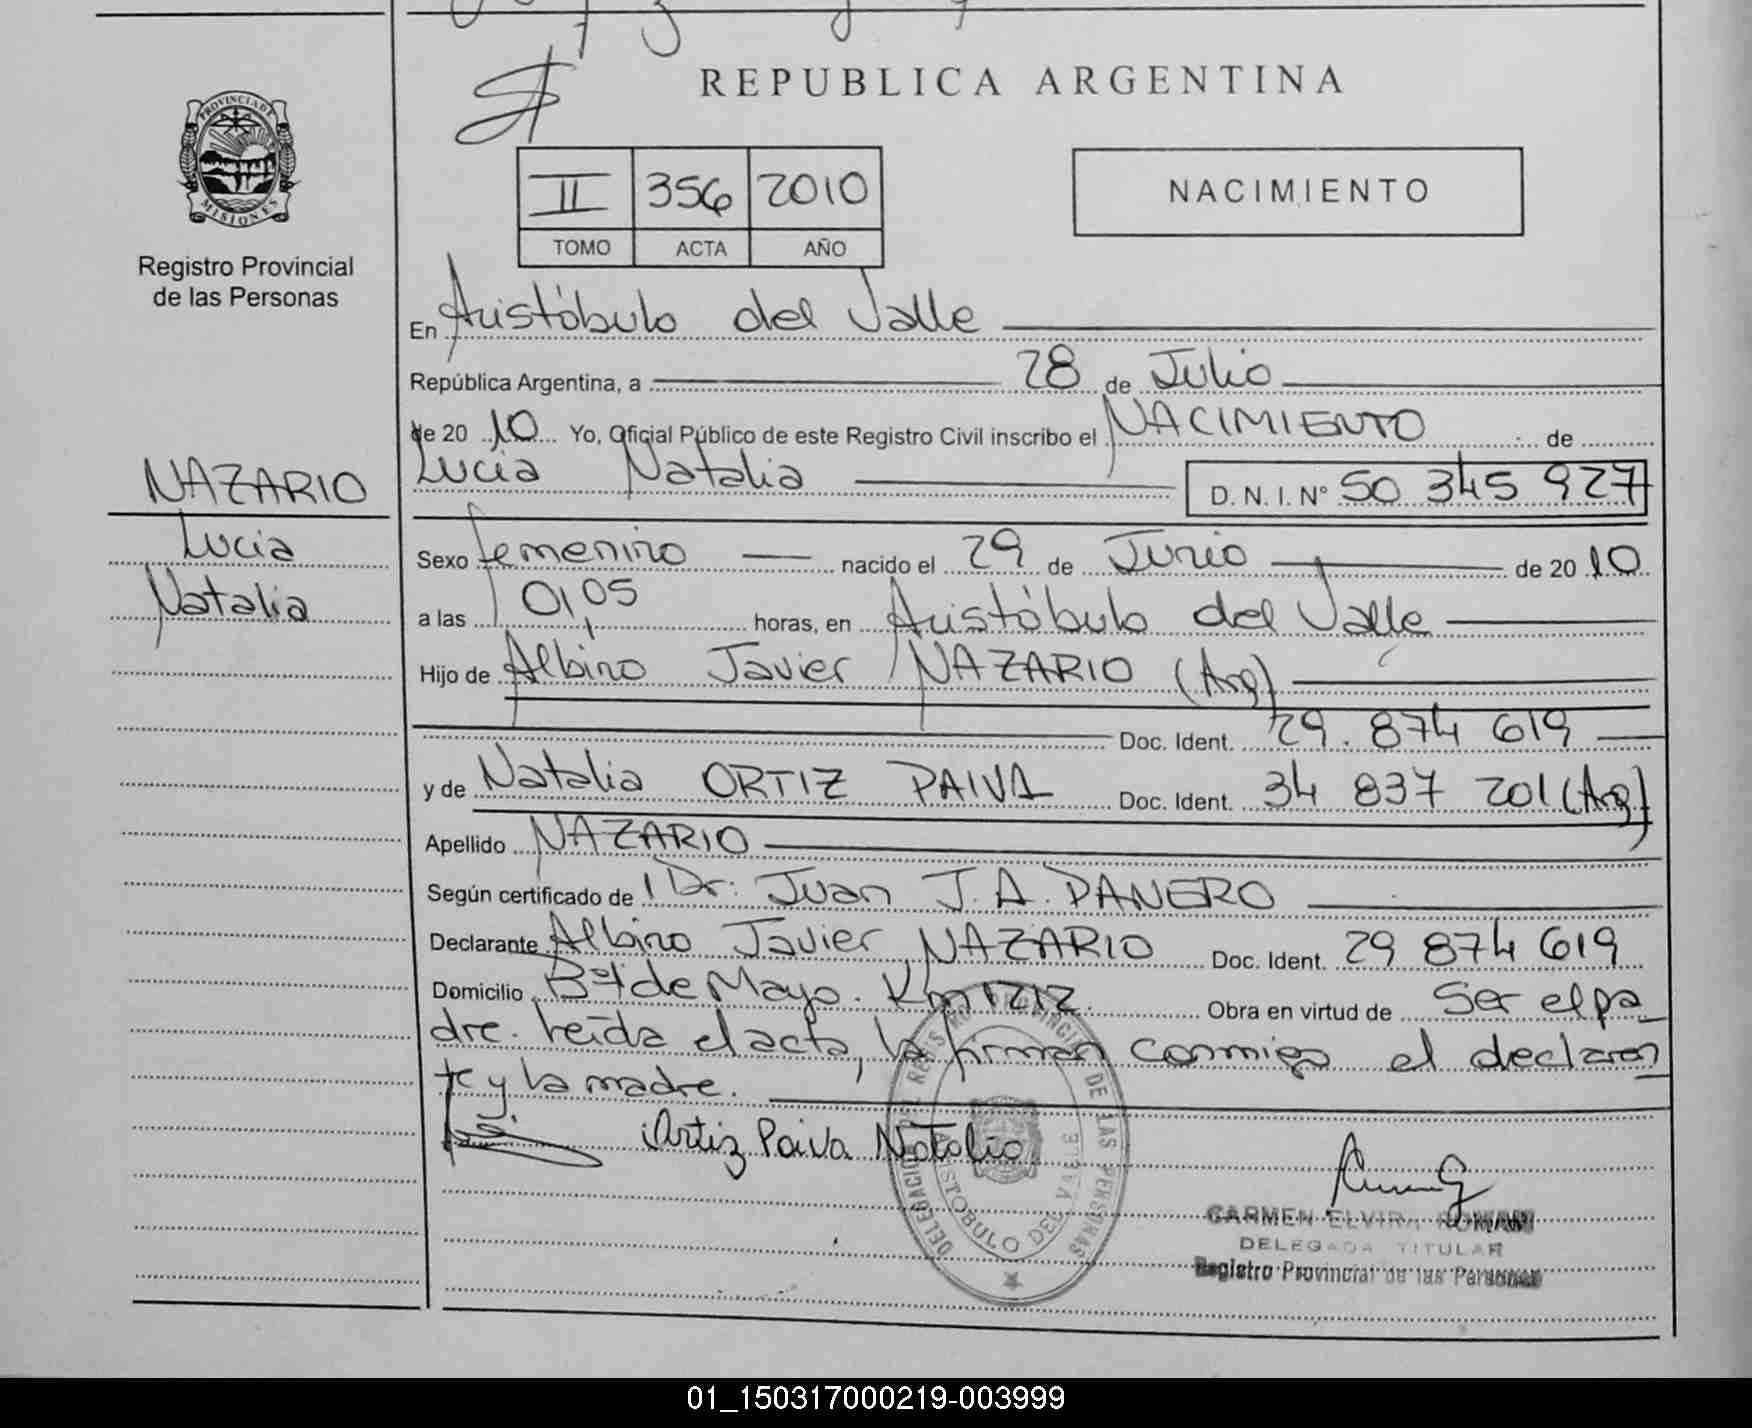 REPUBLICA ARGENTINA
PROVINCIA DE MISIONES
Registro Provincial
de las Personas
II 356 2010
TOMO ACTA AÑO
NACIMIENTO
En Aristóbulo del Valle
República Argentina, a 28 de Julio
de 20 10 Yo, Oficial Público de este Registro Civil inscribo el NACIMIENTO de
Lucia Natalia D.N.I. N° 50 345 927
NAZARIO
Lucia
Natalia
Sexo femenino nacido el 29 de Junio de 20 10
a las 0,05 horas, en Aristóbulo del Valle
Hijo de Albino Javier NAZARIO (Arg)
Doc. Ident. 29.874 619
y de Natalia ORTIZ PAIVA Doc. Ident. 34 837 201 (Arg)
Apellido NAZARIO
Según certificado de Dr. Juan J. A. DANERO
Declarante Albino Javier NAZARIO Doc. Ident. 29 874 619
Domicilio de Mayo. Km 1212 Obra en virtud de Ser el pa
dre. Leída el acta, la firman conmigo el declaran
te y la madre.
Ortiz Paiva Natalia
DELEGACION DEL REGISTRO PROVINCIAL DE LAS PERSONAS
ARISTOBULO DEL VALLE
CARMEN ELVIRA ROMAN
DELEGADA TITULAR
Registro Provincial de las Personas
01_150317000219-003999